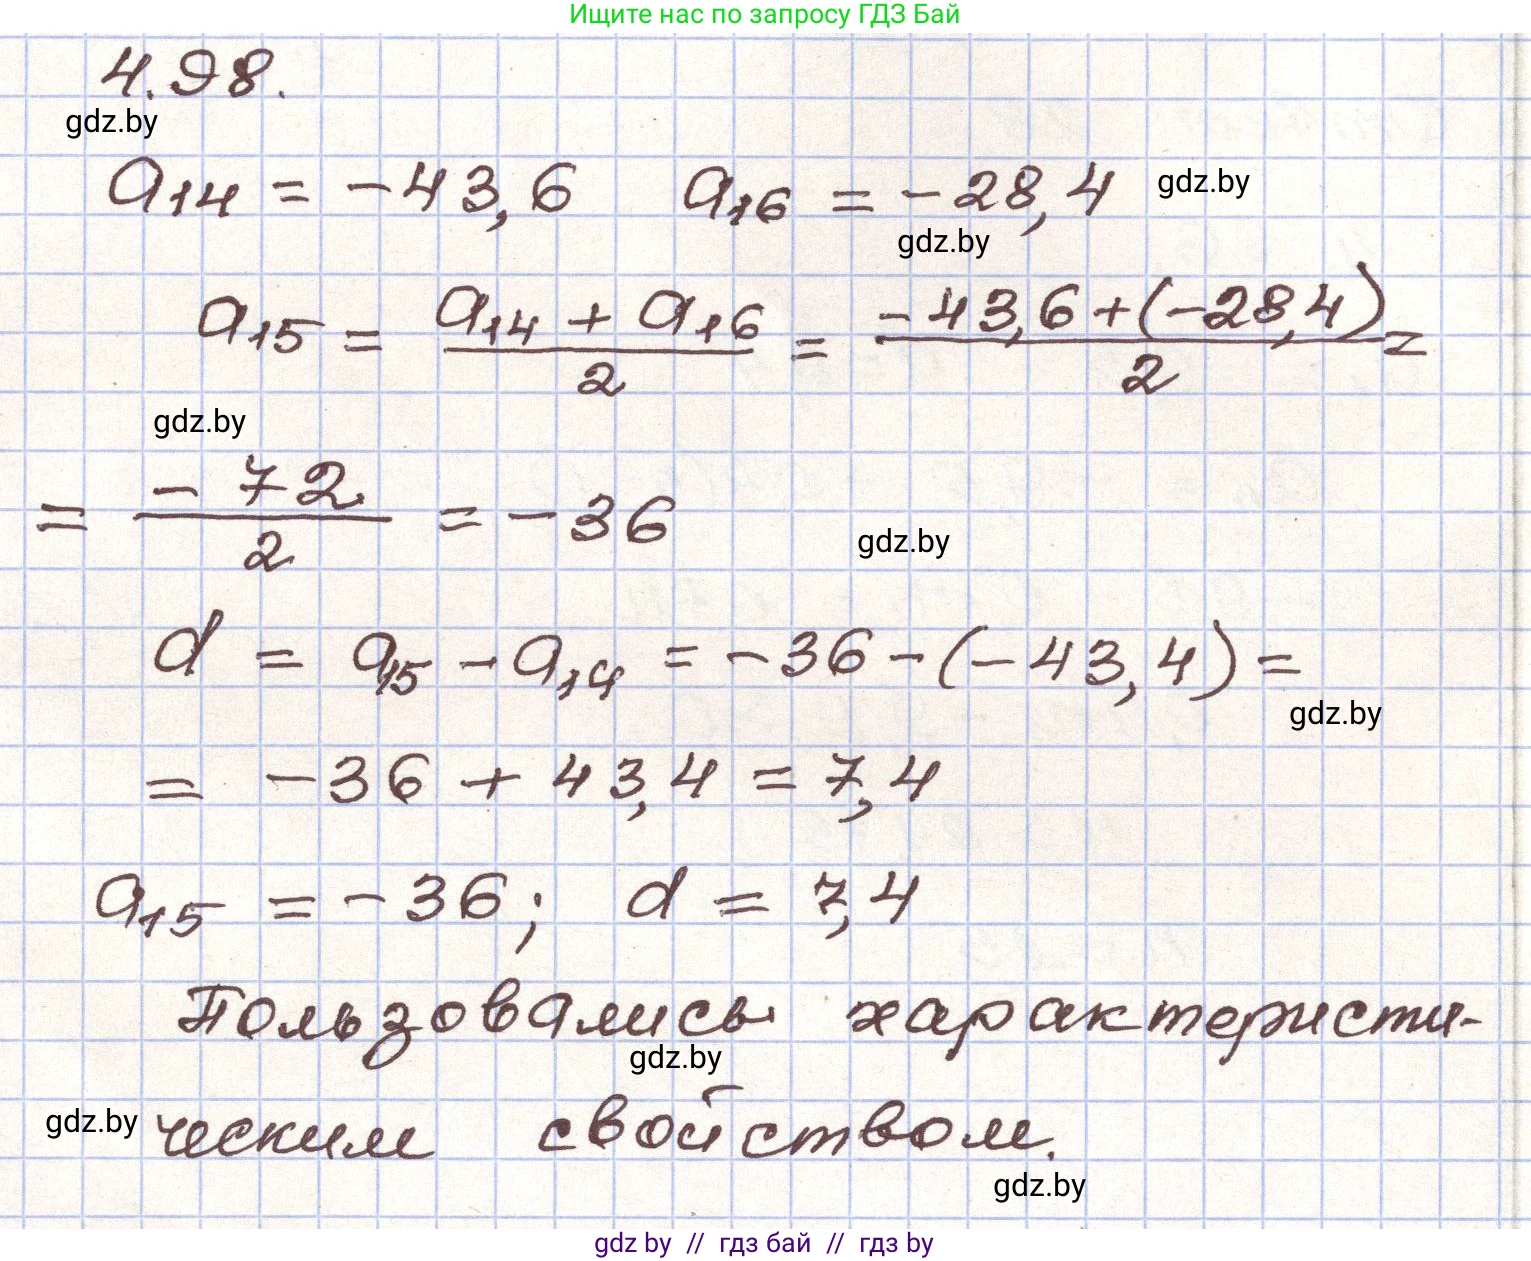 Ищите нас по запросу ГДЗ Бай
4.98.
gdz.by
a₁₄ = -43,6 a₁₆ = -28,4 gdz.by
gdz.by
a₁₅ = (a₁₄ + a₁₆)/2 = (-43,6+(-28,4))/2 =
gdz.by
= -72/2 = -36
gdz.by
d = a₁₅ - a₁₄ = -36-(-43,4) =
gdz.by
= -36 + 43,4 = 7,4
a₁₅ = -36; d = 7,4
Пользовались характеристи-
gdz.by
gdz.by ческим свойством.
gdz.by
gdz by // гдз бай // гдз by